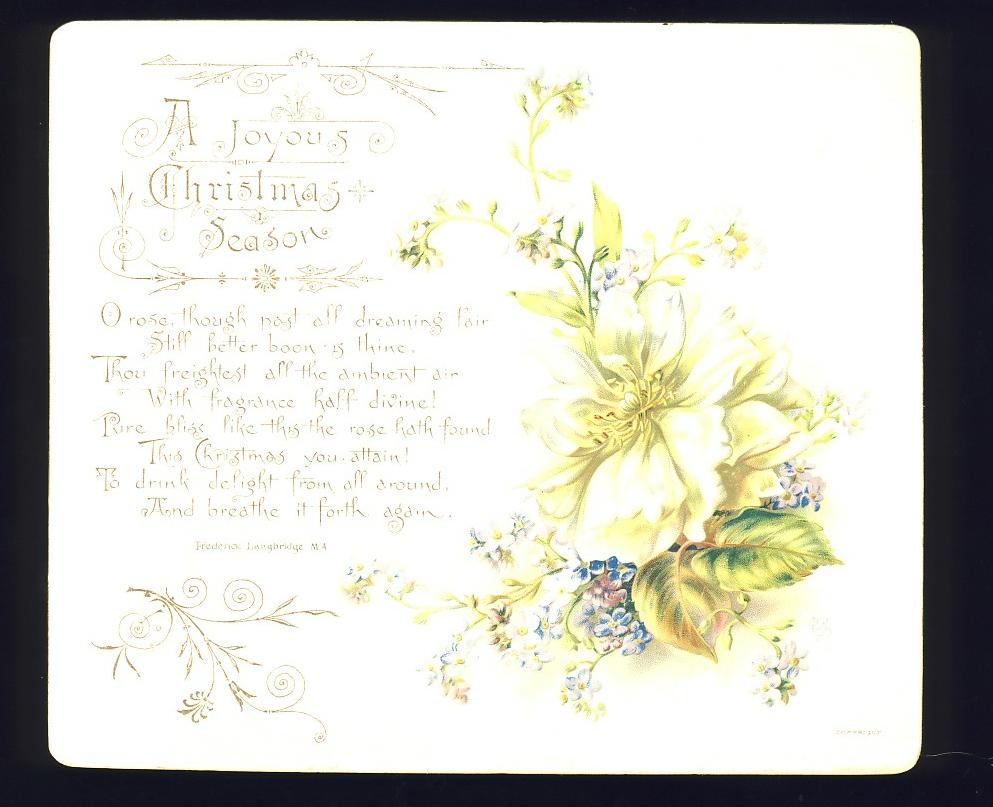 A Joyous
Christmas
Season
O rose, though past all dreaming fair
Still better boon is thine,
Thou freightest all the ambient air
With fragrance half divine!
Pure bliss like this the rose hath found
This Christmas you attain!
To drink delight from all around,
And breathe it forth again.
Frederick Langbridge M A
COPYRIGHT